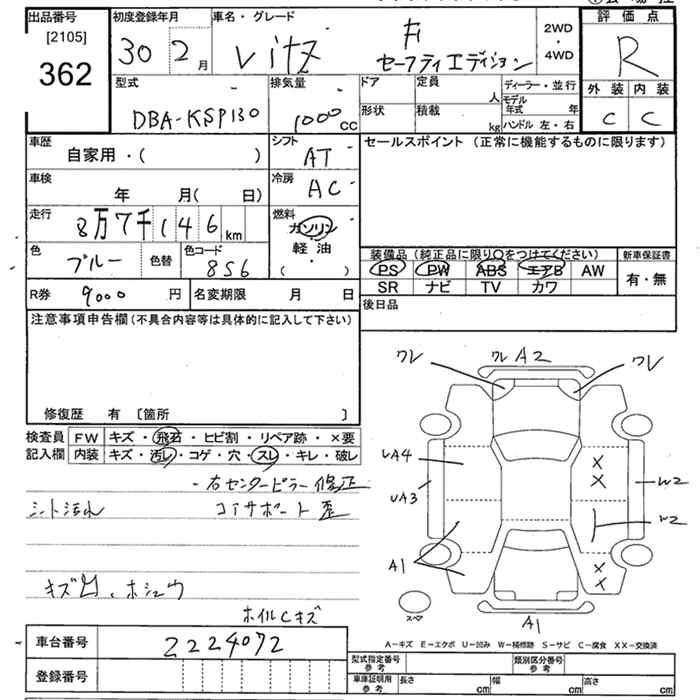 出品番号 初度登録年月 車名・グレード 評価点
[2105] 30 2月 Vitz F セーフティエディション 2WD・4WD R
362
型式 排気量 ドア 定員 人 ディーラー・並行 外装 内装
DBA-KSP130 1000cc 形状 積載 kg モデル年式 年 ハンドル 左・右 C C
車歴 シフト セールスポイント (正常に機能するものに限ります)
自家用・( ) AT
車検 冷房
年 月( 日) AC
走行 燃料
8万7千146km ガソリン
軽油
( ・ )
色 色替 色コード
ブルー 856
装備品 (純正品に限り○をつけてください) 新車保証書
PS PW ABS エアB AW 有・無
SR ナビ TV カワ
R券 9000円 名変期限 月 日 後日品
注意事項申告欄(不具合内容等は具体的に記入して下さい)
修復歴 有 [箇所 ]
検査員 FW キズ・飛石・ヒビ割・リペア跡・×要
記入欄 内装 キズ・汚レ・コゲ・穴・スレ・キレ・破レ
・右センターピラー修正
シート汚れ コアサポート歪
キズ凹、ホシュウ
ホイルCキズ
ワレ ワレA2 ワレ
UA4 X X
UA3 W2
W2
A1 X X
スペア A1
車台番号 2224072
登録番号
A-キズ E-エクボ U-凹み W-補修跡 S-サビ C-腐食 XX-交換済
型式指定番号 参考 類別区分番号 参考
車庫証明用 参考 長さ cm 幅 cm 高さ cm